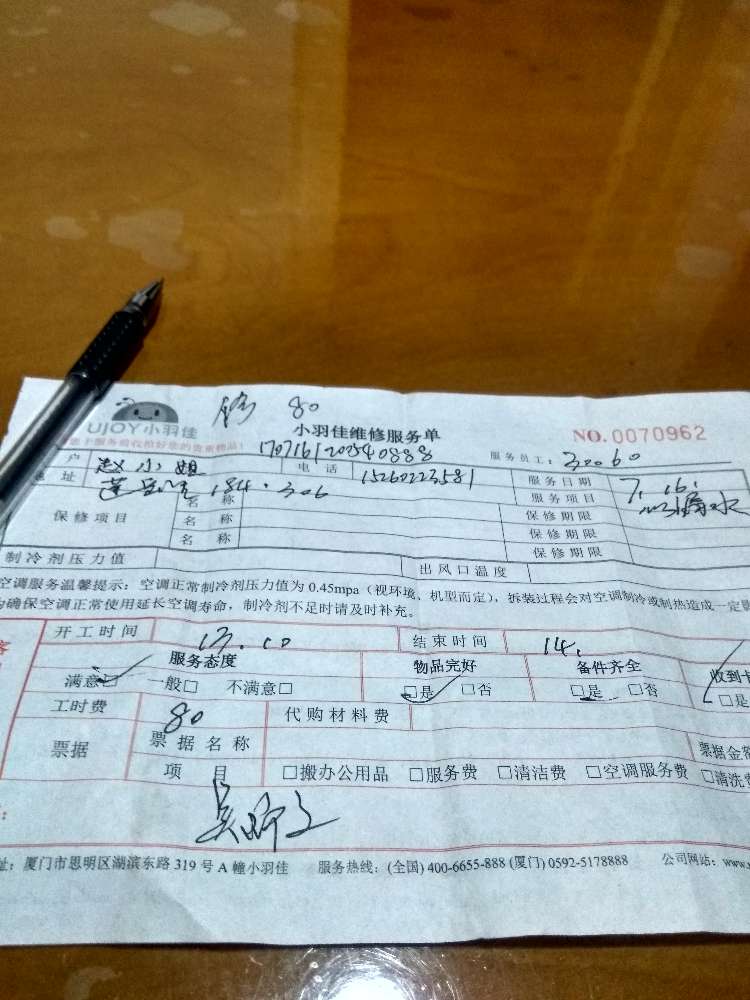 修 80
UJOY小羽佳
小羽佳维修服务单
NO. 0070962
1707161202540888
服务员工: 30060
户 赵小姐 电话 15260223581 服务日期 7.16.
地址 莲 184.306 服务项目 水
保修项目 名称 保修期限
名称 保修期限
名称 保修期限
制冷剂压力值 出风口温度
空调服务温馨提示：空调正常制冷剂压力值为 0.45mpa（视环境、机型而定），拆装过程会对空调制冷或制热造成一定
为确保空调正常使用延长空调寿命，制冷剂不足时请及时补充。
开工时间 13.10 结束时间 14.
服务态度 物品完好 备件齐全 收到
满意□ 一般□ 不满意□ □是 □否 □是 □否 □是
工时费 80 代购材料费
票据 票据名称 票据金额
项目 □搬办公用品 □服务费 □清洁费 □空调服务费 □清洗
址：厦门市思明区湖滨东路 319 号 A 幢小羽佳 服务热线：(全国) 400-6655-888 (厦门) 0592-5178888 公司网站：www.